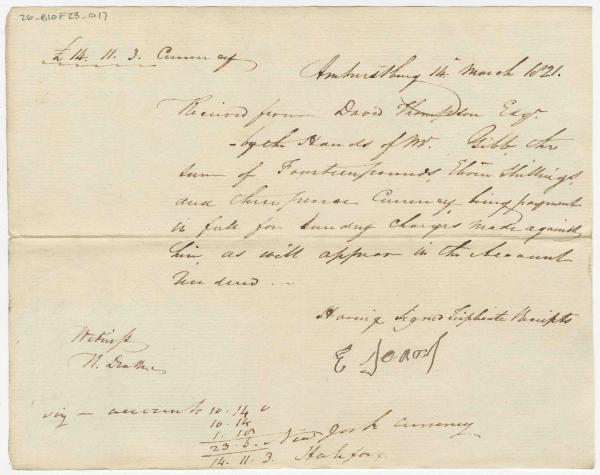 26-B10F23-017
£ 14. 11. 3. Currency
Amherstburg 14th March 1821.
Received from David Thompson Esqr.
by the Hands of Mr. Gibb the
sum of Fourteen pounds, Eleven Shillings,
and three pence Currency being payment
in full for Sundry Charges made against
him as will appear in the Account
Tendered ..
Having Signed Triplicate Receipts
Witness
W.
viz - accounts 10. 14 0
10. 14
1. 18
23. 6. New York currency
14. 11. 3. Halifax